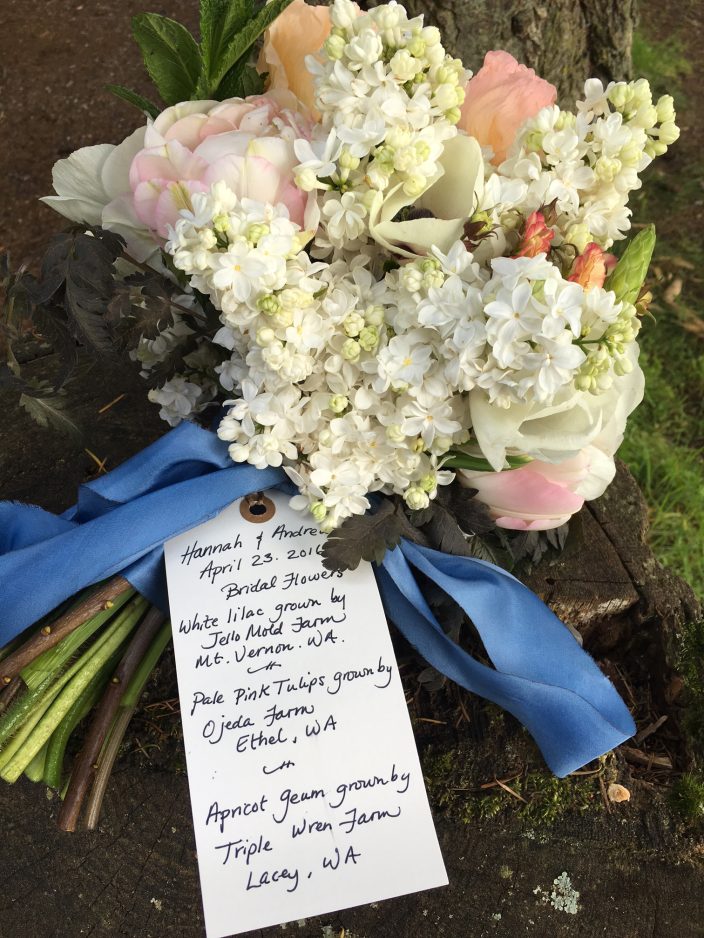 Hannah & Andre
April 23. 2016
Bridal Flowers
White lilac grown by
Jello Mold Farm
Mt. Vernon. WA.
Pale Pink Tulips grown by
Ojeda Farm
Ethel, WA
Apricot geum grown by
Triple Wren Farm
Lacey, WA